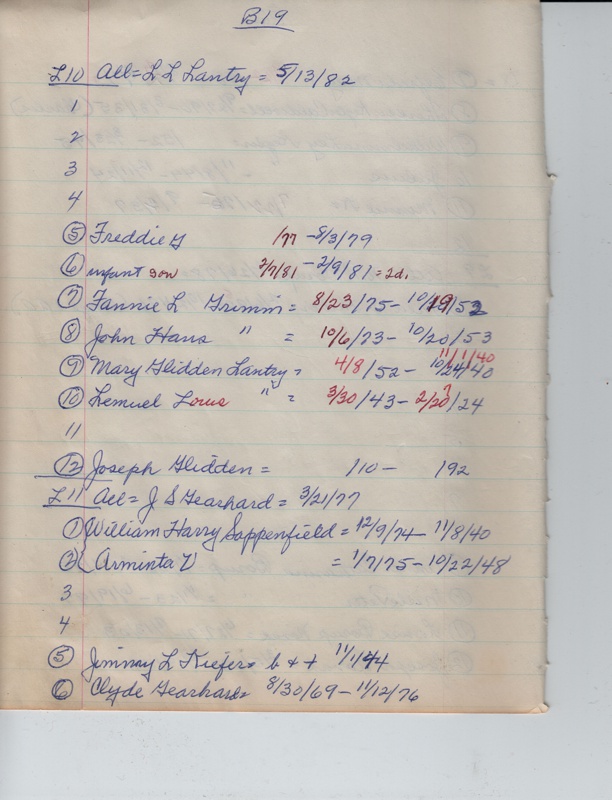 B19
L10 All = L L Lantry = 5/13/82
1
2
3
4
5 Freddie G /77 - 8/3/79
6 infant son 2/7/81 - 2/9/81 = 2d.
7 Fannie L Grimm = 8/23/75 - 10/19/52
8 John Hans " = 10/6/73 - 10/20/53
9 Mary Glidden Lantry = 4/8/52 - 10/24/40 11/1/40
10 Lemuel Louis " = 3/30/43 - 2/20/24 ?
11
12 Joseph Glidden = /10 - /92
L11 All = J S Gearhard = 3/21/77
1 William Harry Sappenfield = 12/9/74 - 11/8/40
2 Arminta V = 1/7/75 - 10/22/48
3
4
5 Jimmay L Kiefer = b + + 11/1/44
6 Clyde Gearhard = 8/30/69 - 11/12/76